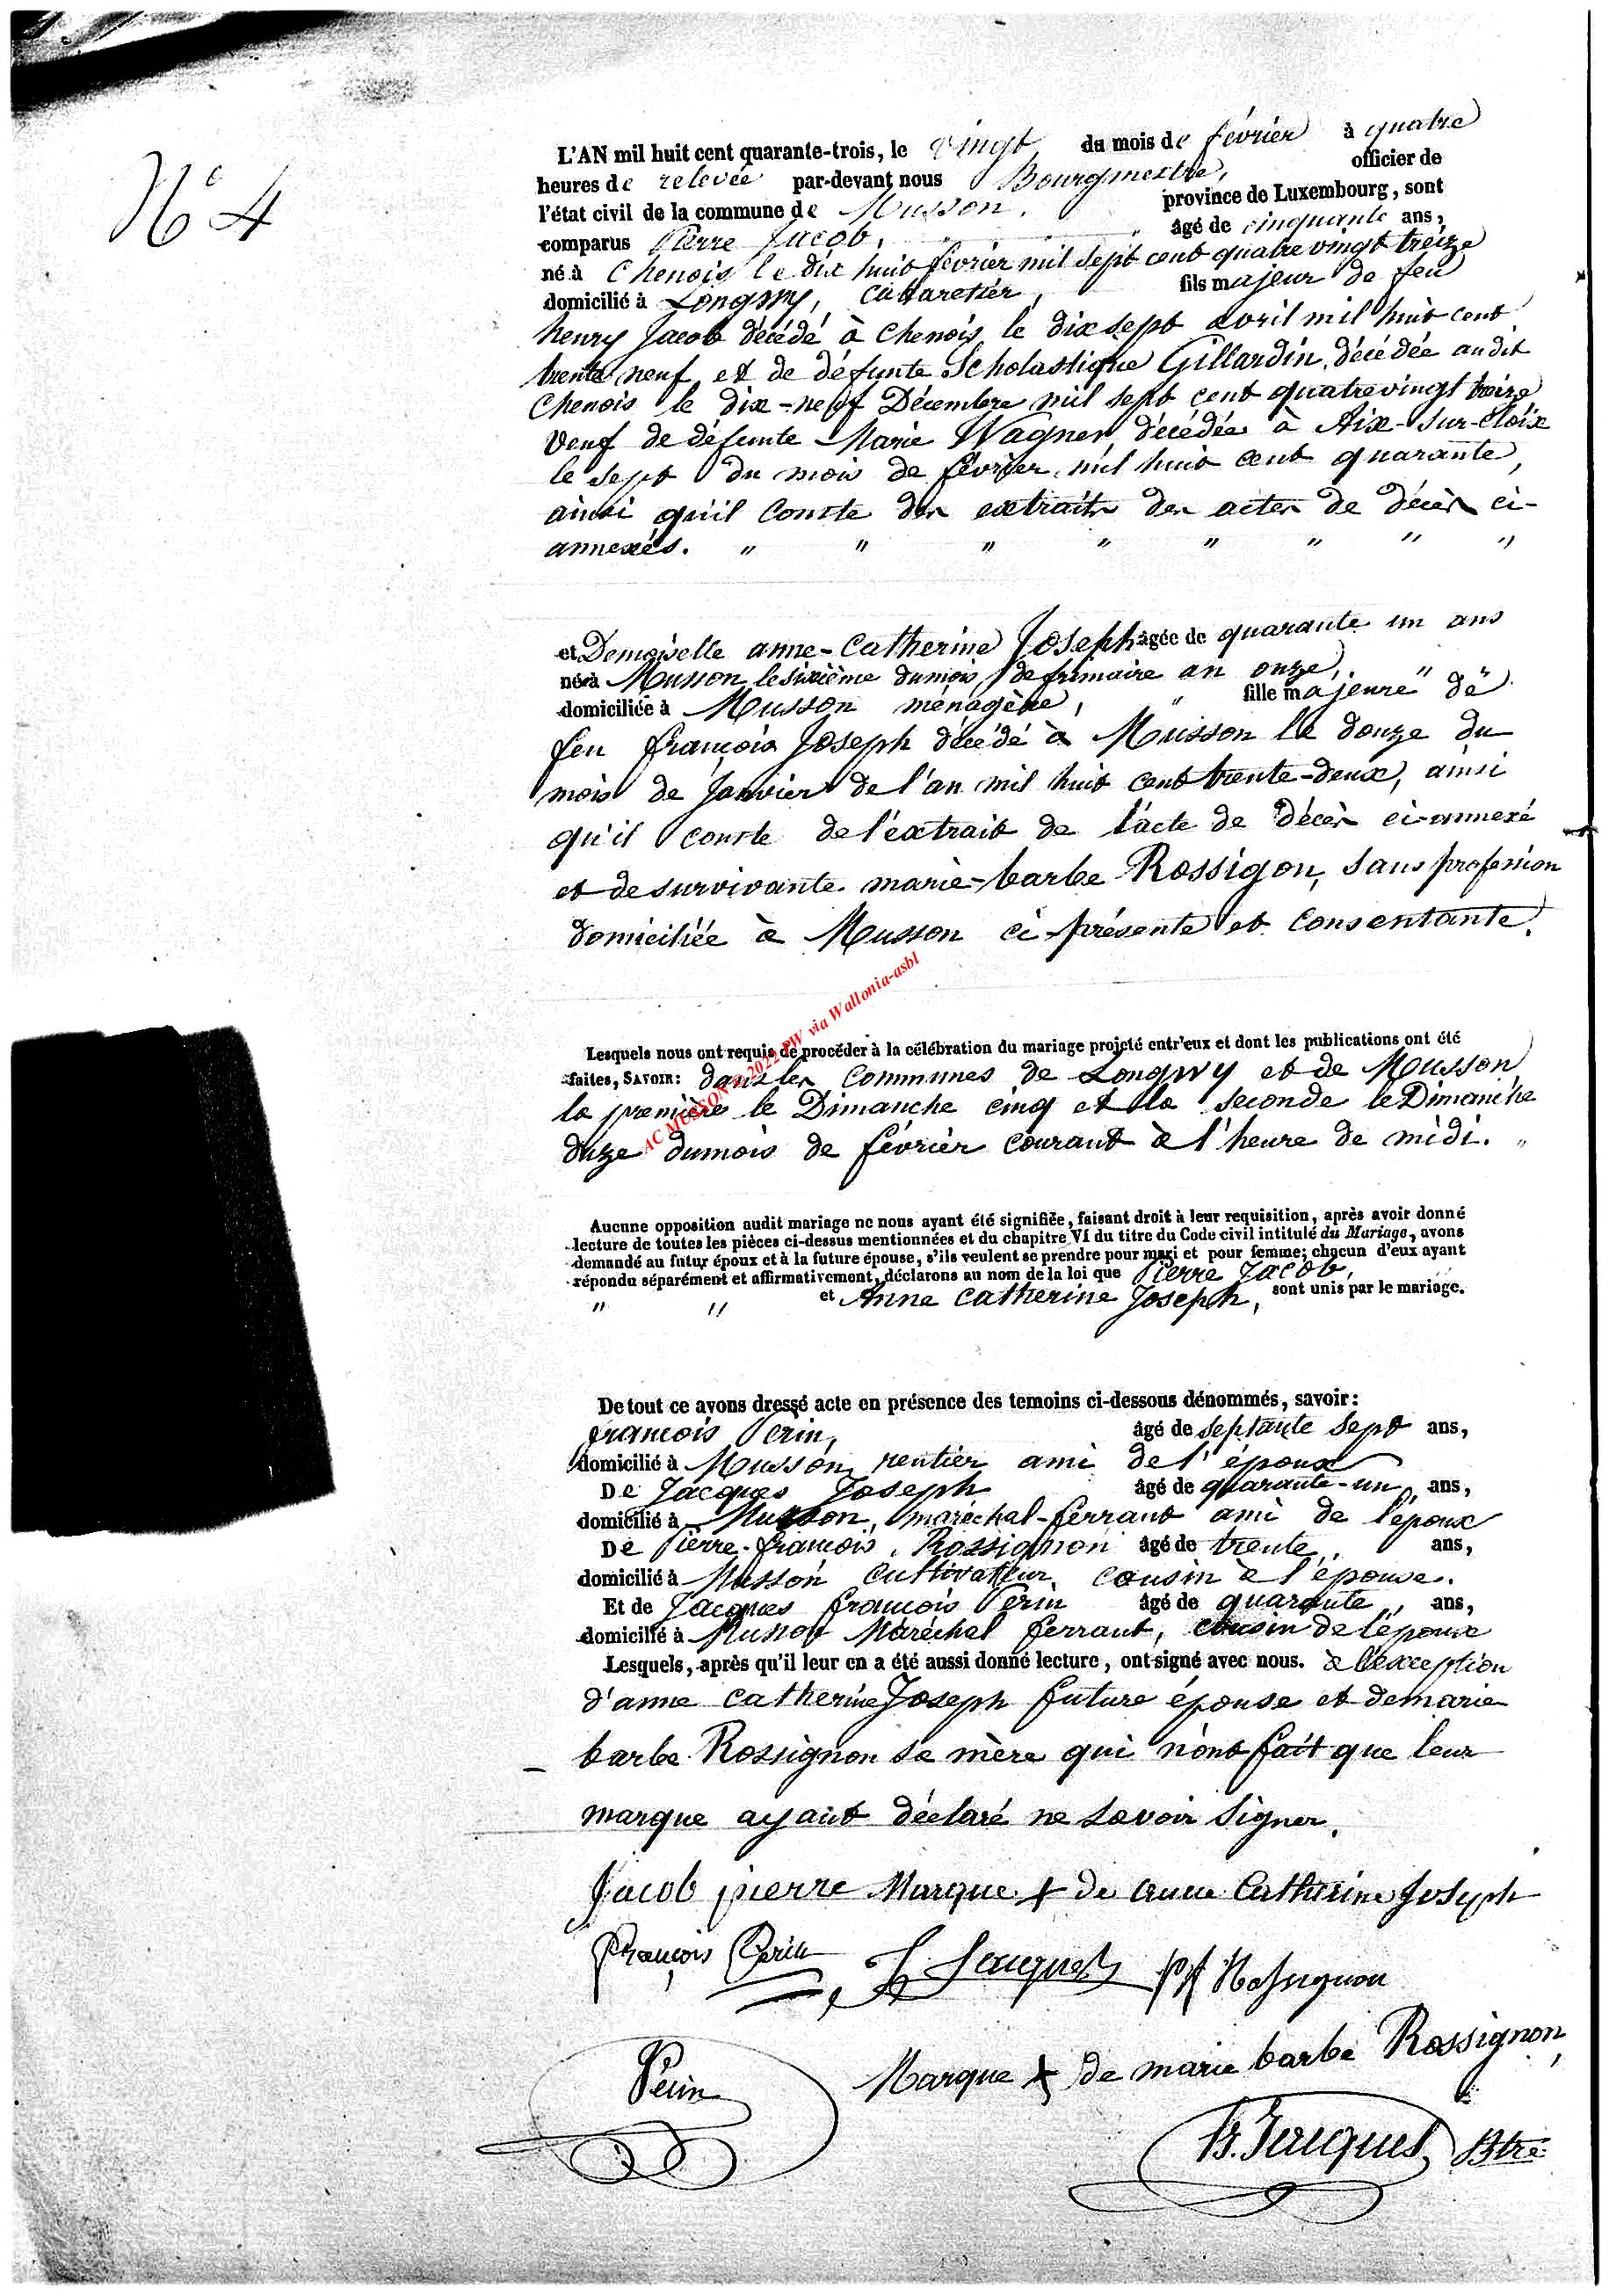 N° 4
L'AN mil huit cent quarante-trois, le vingt du mois de février à quatre
heures de relevée par-devant nous Bourgmestre, officier de
l'état civil de la commune de Musson. province de Luxembourg, sont
comparus Pierre Jacob, âgé de cinquante ans,
né à Chenois le dix huit février mil sept cent quatre vingt treize
domicilié à Longwy, cabaretier, fils majeur de feu
henry Jacob décédé à Chenois le dix sept avril mil huit cent
trente neuf et de défunte Scholastique Gillardin, décédée audit
Chenois le dix-neuf Décembre mil sept cent quatrevingt treize
veuf de défunte Marie Wagner, décédée à Aix-sur-Cloix
le sept du mois de février mil huit cent quarante,
ainsi qu'il conste des extraits des actes de décès ci-
annexés. " " " " " " " "
et Demoiselle anne-Catherine Joseph âgée de quarante un ans
née à Musson le sixième du mois de frimaire an onze, "
domiciliée à Musson ménagère, " fille majeure de
feu françois Joseph décédé à Musson le douze du
mois de Janvier de l'an mil huit cent trente-deux, ainsi
qu'il conste de l'extrait de l'acte de décès ci-annexé
et de survivante marie-barbe Rossigon, sans profession
domiciliée à Musson ci-présente et consentante.
Lesquels nous ont requis de procéder à la célébration du mariage projeté entr'eux et dont les publications ont été
faites, SAVOIR: dans les communes de Longwy et de Musson
la première le Dimanche cinq et la seconde le Dimanche
douze du mois de février courant à l'heure de midi. "
AC MUSSON © 2022 PW via Wallonia-asbl
Aucune opposition audit mariage ne nous ayant été signifiée, faisant droit à leur requisition, après avoir donné
lecture de toutes les pièces ci-dessus mentionnées et du chapitre VI du titre du Code civil intitulé du Mariage, avons
demandé au futur époux et à la future épouse, s'ils veulent se prendre pour mari et pour femme; chacun d'eux ayant
répondu séparément et affirmativement, déclarons au nom de la loi que Pierre Jacob,
" " et Anne Catherine Joseph, sont unis par le mariage.
De tout ce avons dressé acte en présence des temoins ci-dessous dénommés, savoir:
françois Perin, âgé de septante sept ans,
domicilié à Musson, rentier ami de l'époux
De Jacques Joseph âgé de quarante-un ans,
domicilié à Musson, maréchal-ferrant ami de l'époux
De Pierre-françois Rossignon âgé de trente, ans,
domicilié à Musson Cultivateur cousin à l'épouse.
Et de Jacques françois Perin âgé de quarante, ans,
domicilié à Musson Maréchal ferrant, cousin de l'épouse
Lesquels, après qu'il leur en a été aussi donné lecture, ont signé avec nous. à l'exception
d'anne Catherine Joseph future épouse et de marie
barbe Rossignon sa mère qui n'ont fait que leur
marque ayant déclaré ne savoir signer.
Jacob pierre Marque + de anne Catherine Joseph
François Perin J Jacques pf Rossignon
Perin Marque + de marie barbe Rossignon,
Jacques Btre